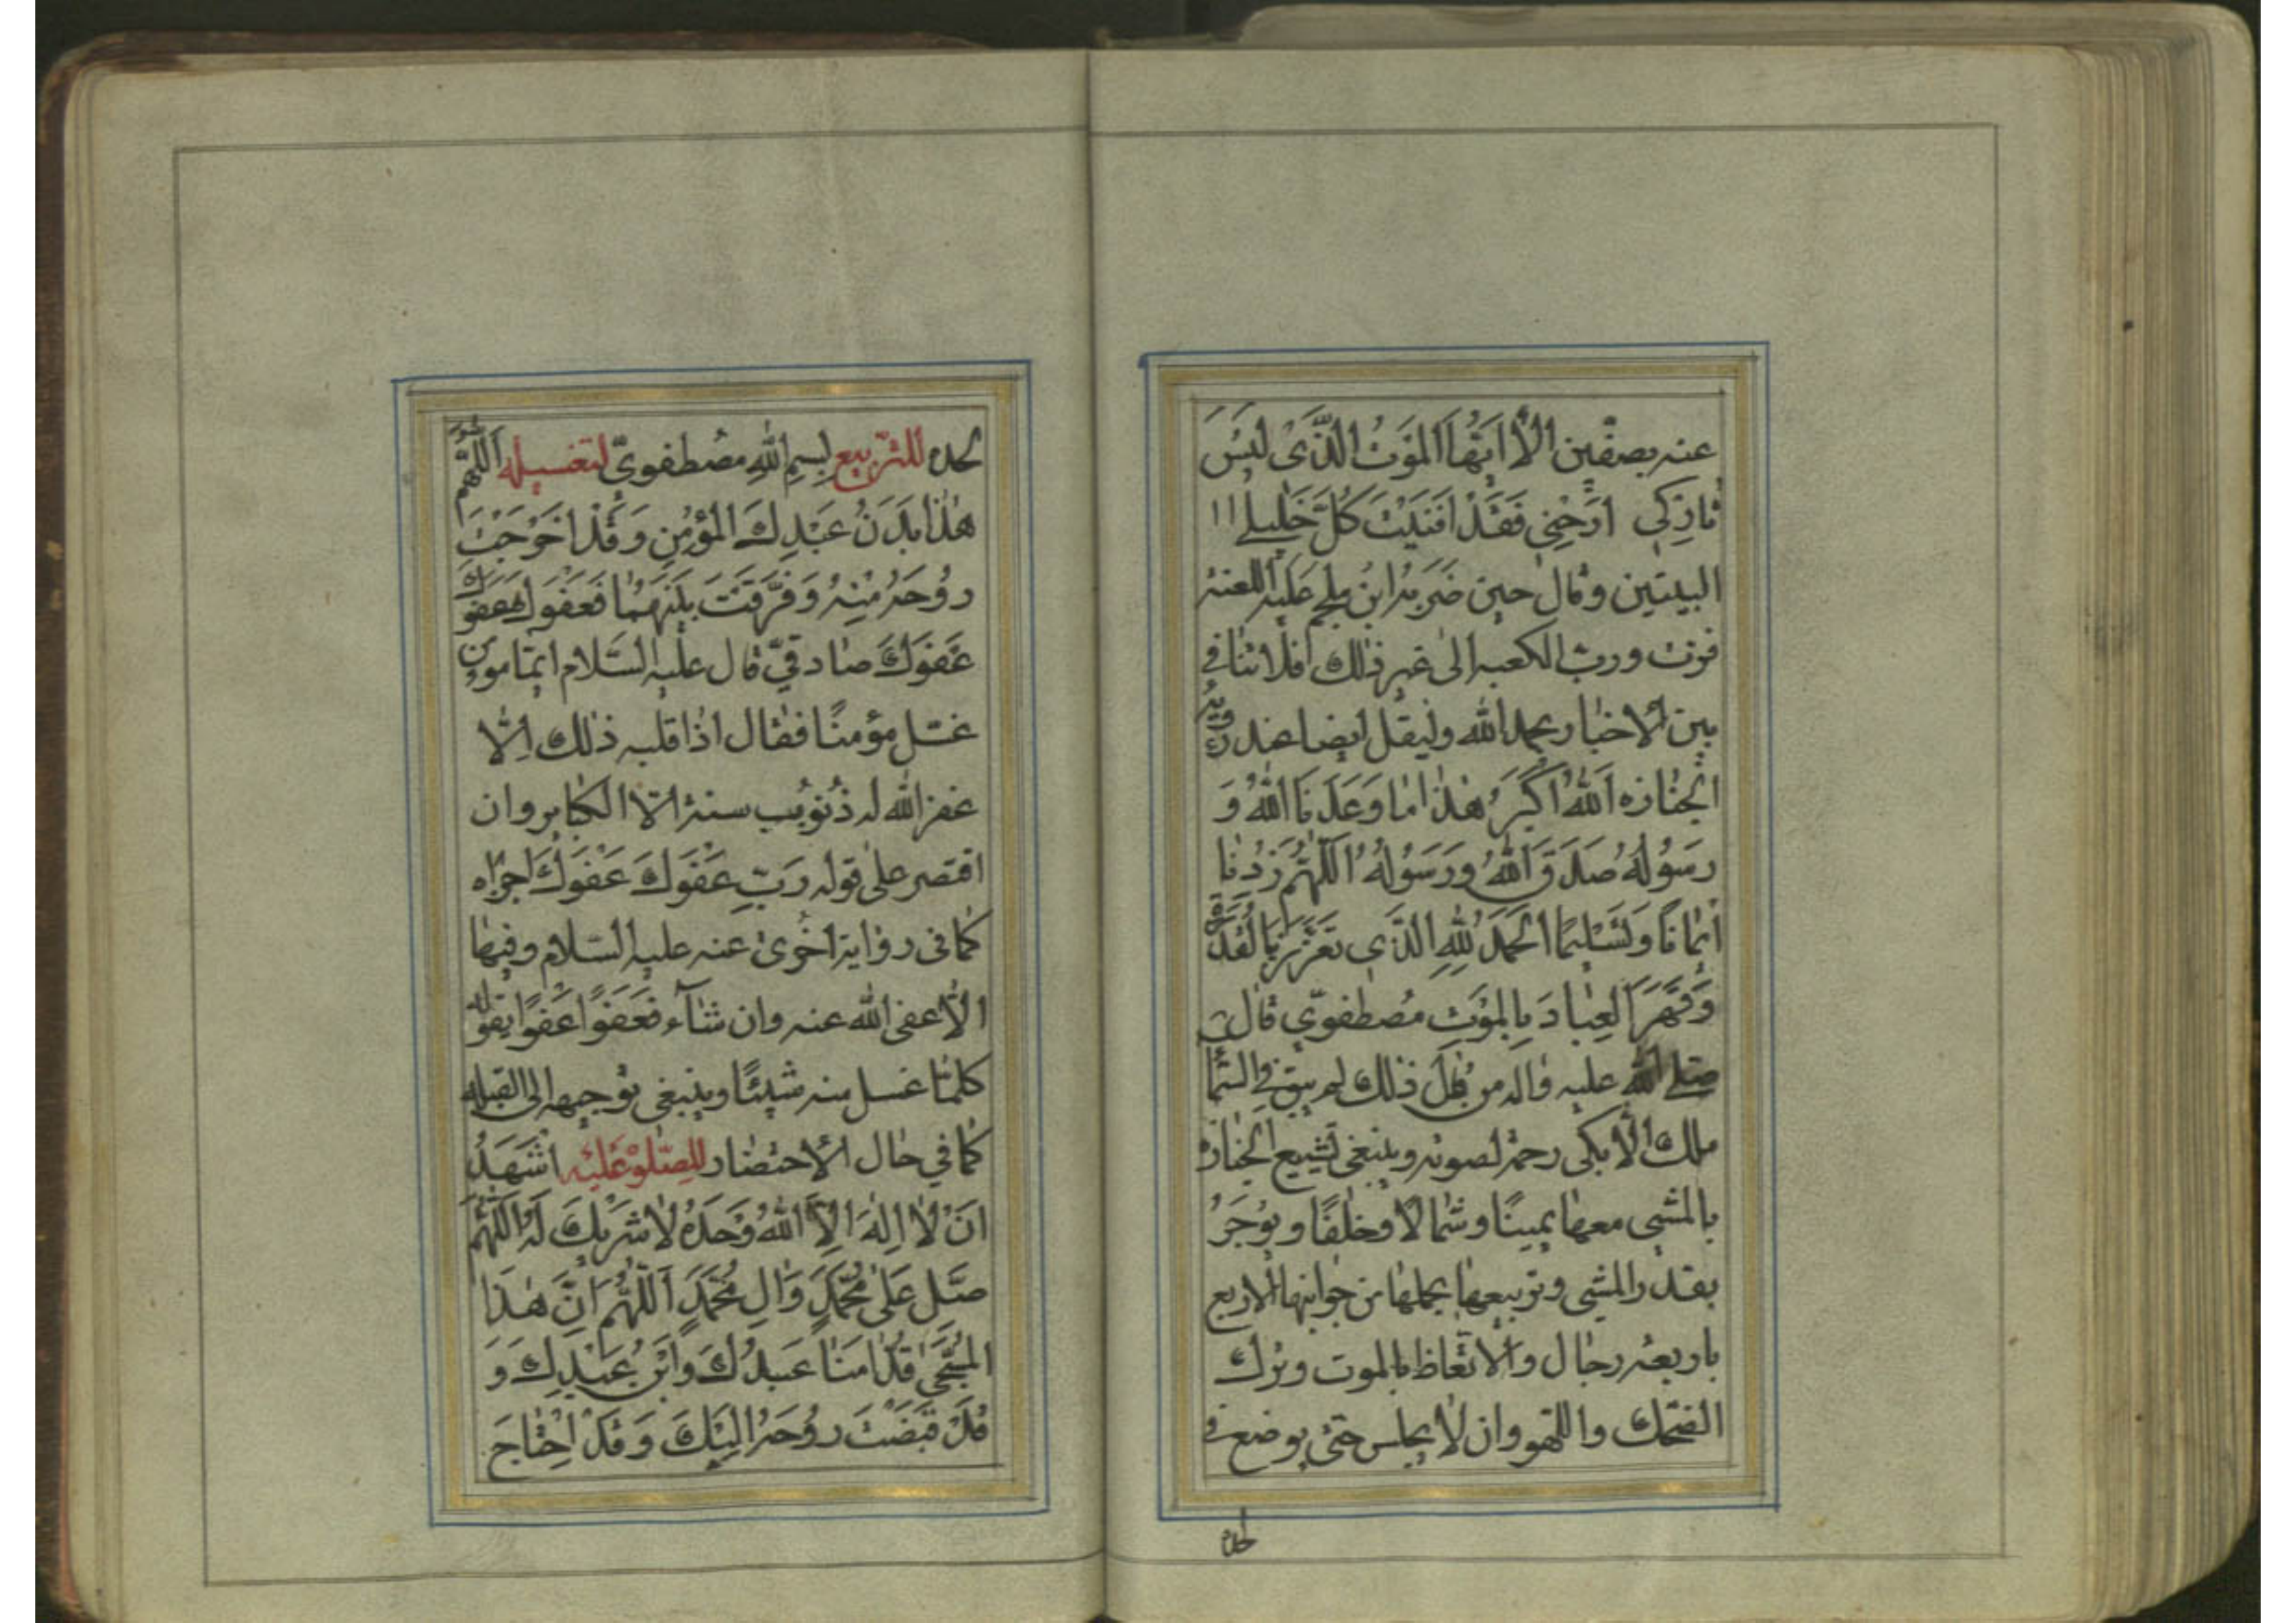 عنه بصفّين الأ ايّها الموَتُ الذّى ليَسَ
تاركى ارحنى فقَدْ افنيَتَ كلّ خَليلے اا
البيتين وقال حين ضَربه ابنُ ملجم عَليه اللعنة
فزت وربّ الكعبه الى غير ذلك فلا تنافے
بين الاخبار بحمد الله وليقل ايضا عند رؤية
الجنازه اَللهُ اكَبَرُ هٰذا ما وَعَدَنَا اللهُ وَ
رسَوُلُهُ صَدَقَ اللهُ ورَسَوُلُهُ اَللّهُمّ زدْنا
ايمانًا وَتسَليمًا الحَمدُ لِلّهِ الذّى تعَزّزَ بالقُدرَة
وَقهَرَ العِبادَ بِالموَتِ مُصطفوىّ قال
صلے الله عليه واله من قال ذلك لم يبق فے السّما
ملك الاّ بكى رحمة لصوته وينبغى تشييع الجنازه
بالمشى معها يمينًا وشمالًا وخلفًا ويؤجَرُ
بقدر المشى وتربيعها بحملها من جوانبها الاربع
باربعة رجال والاتّعاظ بالموت وترك
الضحك واللّهو وان لا يجلس حتى يوضع فے
لحده
لحده للتّربيع بِسمِ اللهِ مصُطفوىّ لتغسيله اَللّهمّ
هٰذا بدَنُ عَبْدِكَ المؤمِنِ وَقَدْ اخَرَجْتَ
روُحَهُ مِنْهُ وَفَرّقتَ بيَنَهمُا فعَفَوكَ عَفوَكَ
عَفوَكَ صادقىّ قال عليه السّلام ايّما مؤمن
غسّل مؤمنًا فقال اذا قلبه ذلك اِلّا
غفر الله له ذنُوب سنة الاّ الكباير وان
اقتصر على قوله رَبّ عَفوَكَ عَفوَكَ اجزاه
كما فى رواية اخُرى عنه عليه السّلام وفيها
الاّ عفى الله عنه وان شآء فعَفَوًا عَفوًا يقوله
كلمّا غسل منه شيئًا وينبغى توجيهه الى القبله
كما فى حال الاحتضار للِصّلوة عَليه اشَهَدُ
انَْ لا اِلهَ اِلاَّ اللهُ وَحدَهُ لا شَريكَ لَهُ اَللّهُمَّ
صَلّ عَلى محُمّدٍ وَالِ محُمّدٍ اَللّهُمَّ اِنَّ هٰذا
المسُجّىٰ قدّامَنا عَبدُكَ وابْنُ عَبدِكَ وَ
قَدْ قبَضْتَ روُحَهُ اِليَكَ وَقَدْ احِتْاجَ